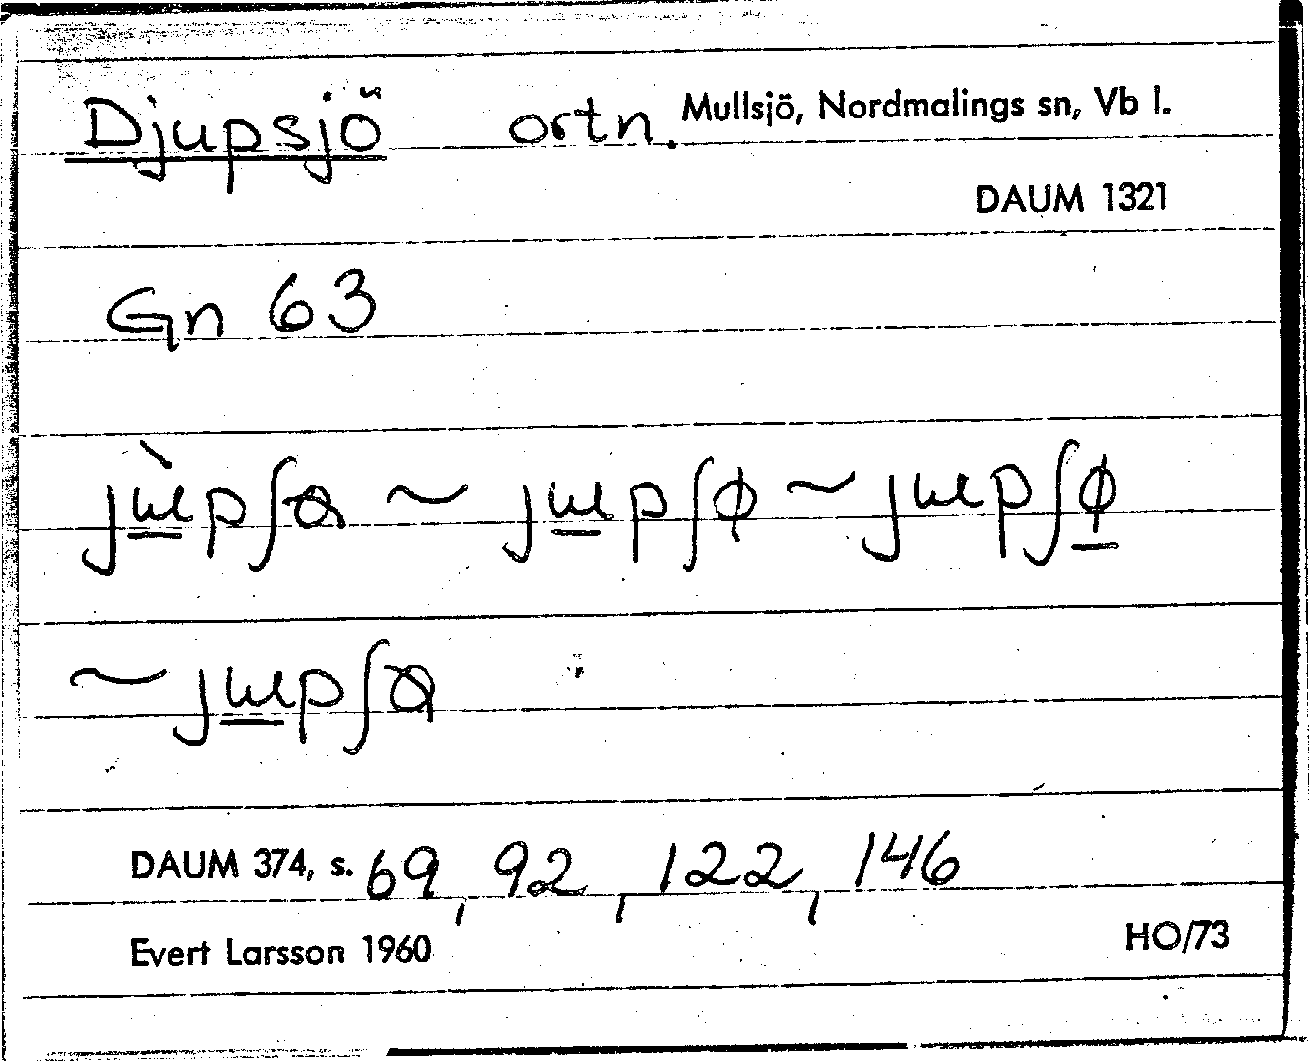 Djupsjö ortn. Mullsjö, Nordmalings sn, Vb l.
DAUM 1321
Gn 63
~
DAUM 374, s. 69, 92, 122, 146
Evert Larsson 1960
HO/73